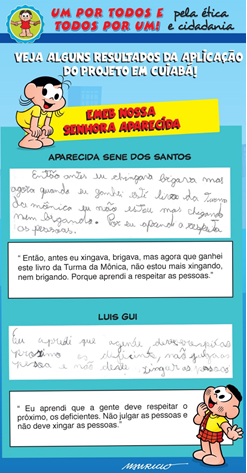 UM POR TODOS E
TODOS POR UM!
pela ética
e cidadania
VEJA ALGUNS RESULTADOS DA APLICAÇÃO
DO PROJETO EM CUIABÁ!
EMEB NOSSA
SENHORA APARECIDA
APARECIDA SENE DOS SANTOS
Então antes eu chingava brigava mas
agora quando eu ganhei este livro da turma
da mônica eu não estou mas chingando
nem brigando. Por eu aprendi a respeita
as pessoas.
" Então, antes eu xingava, brigava, mas agora que ganhei
este livro da Turma da Mônica, não estou mais xingando,
nem brigando. Porque aprendi a respeitar as pessoas."
LUIS GUI
Eu apredi que agente deve respeitar
proximo os deficiente, não julgar as
pesoa e não deste xingar as pesoas
" Eu aprendi que a gente deve respeitar o
próximo, os deficientes. Não julgar as pessoas e
não deve xingar as pessoas."
MAURICIO